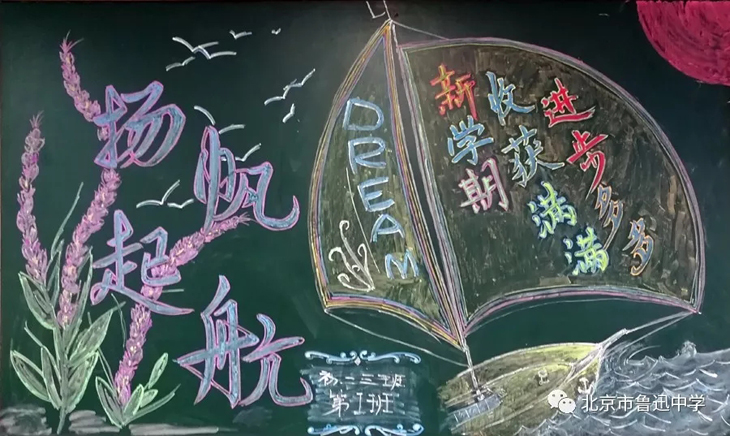 扬帆
起航
DREAM
新学期
收获满满
进步多多
初二三班
第1班
北京市鲁迅中学